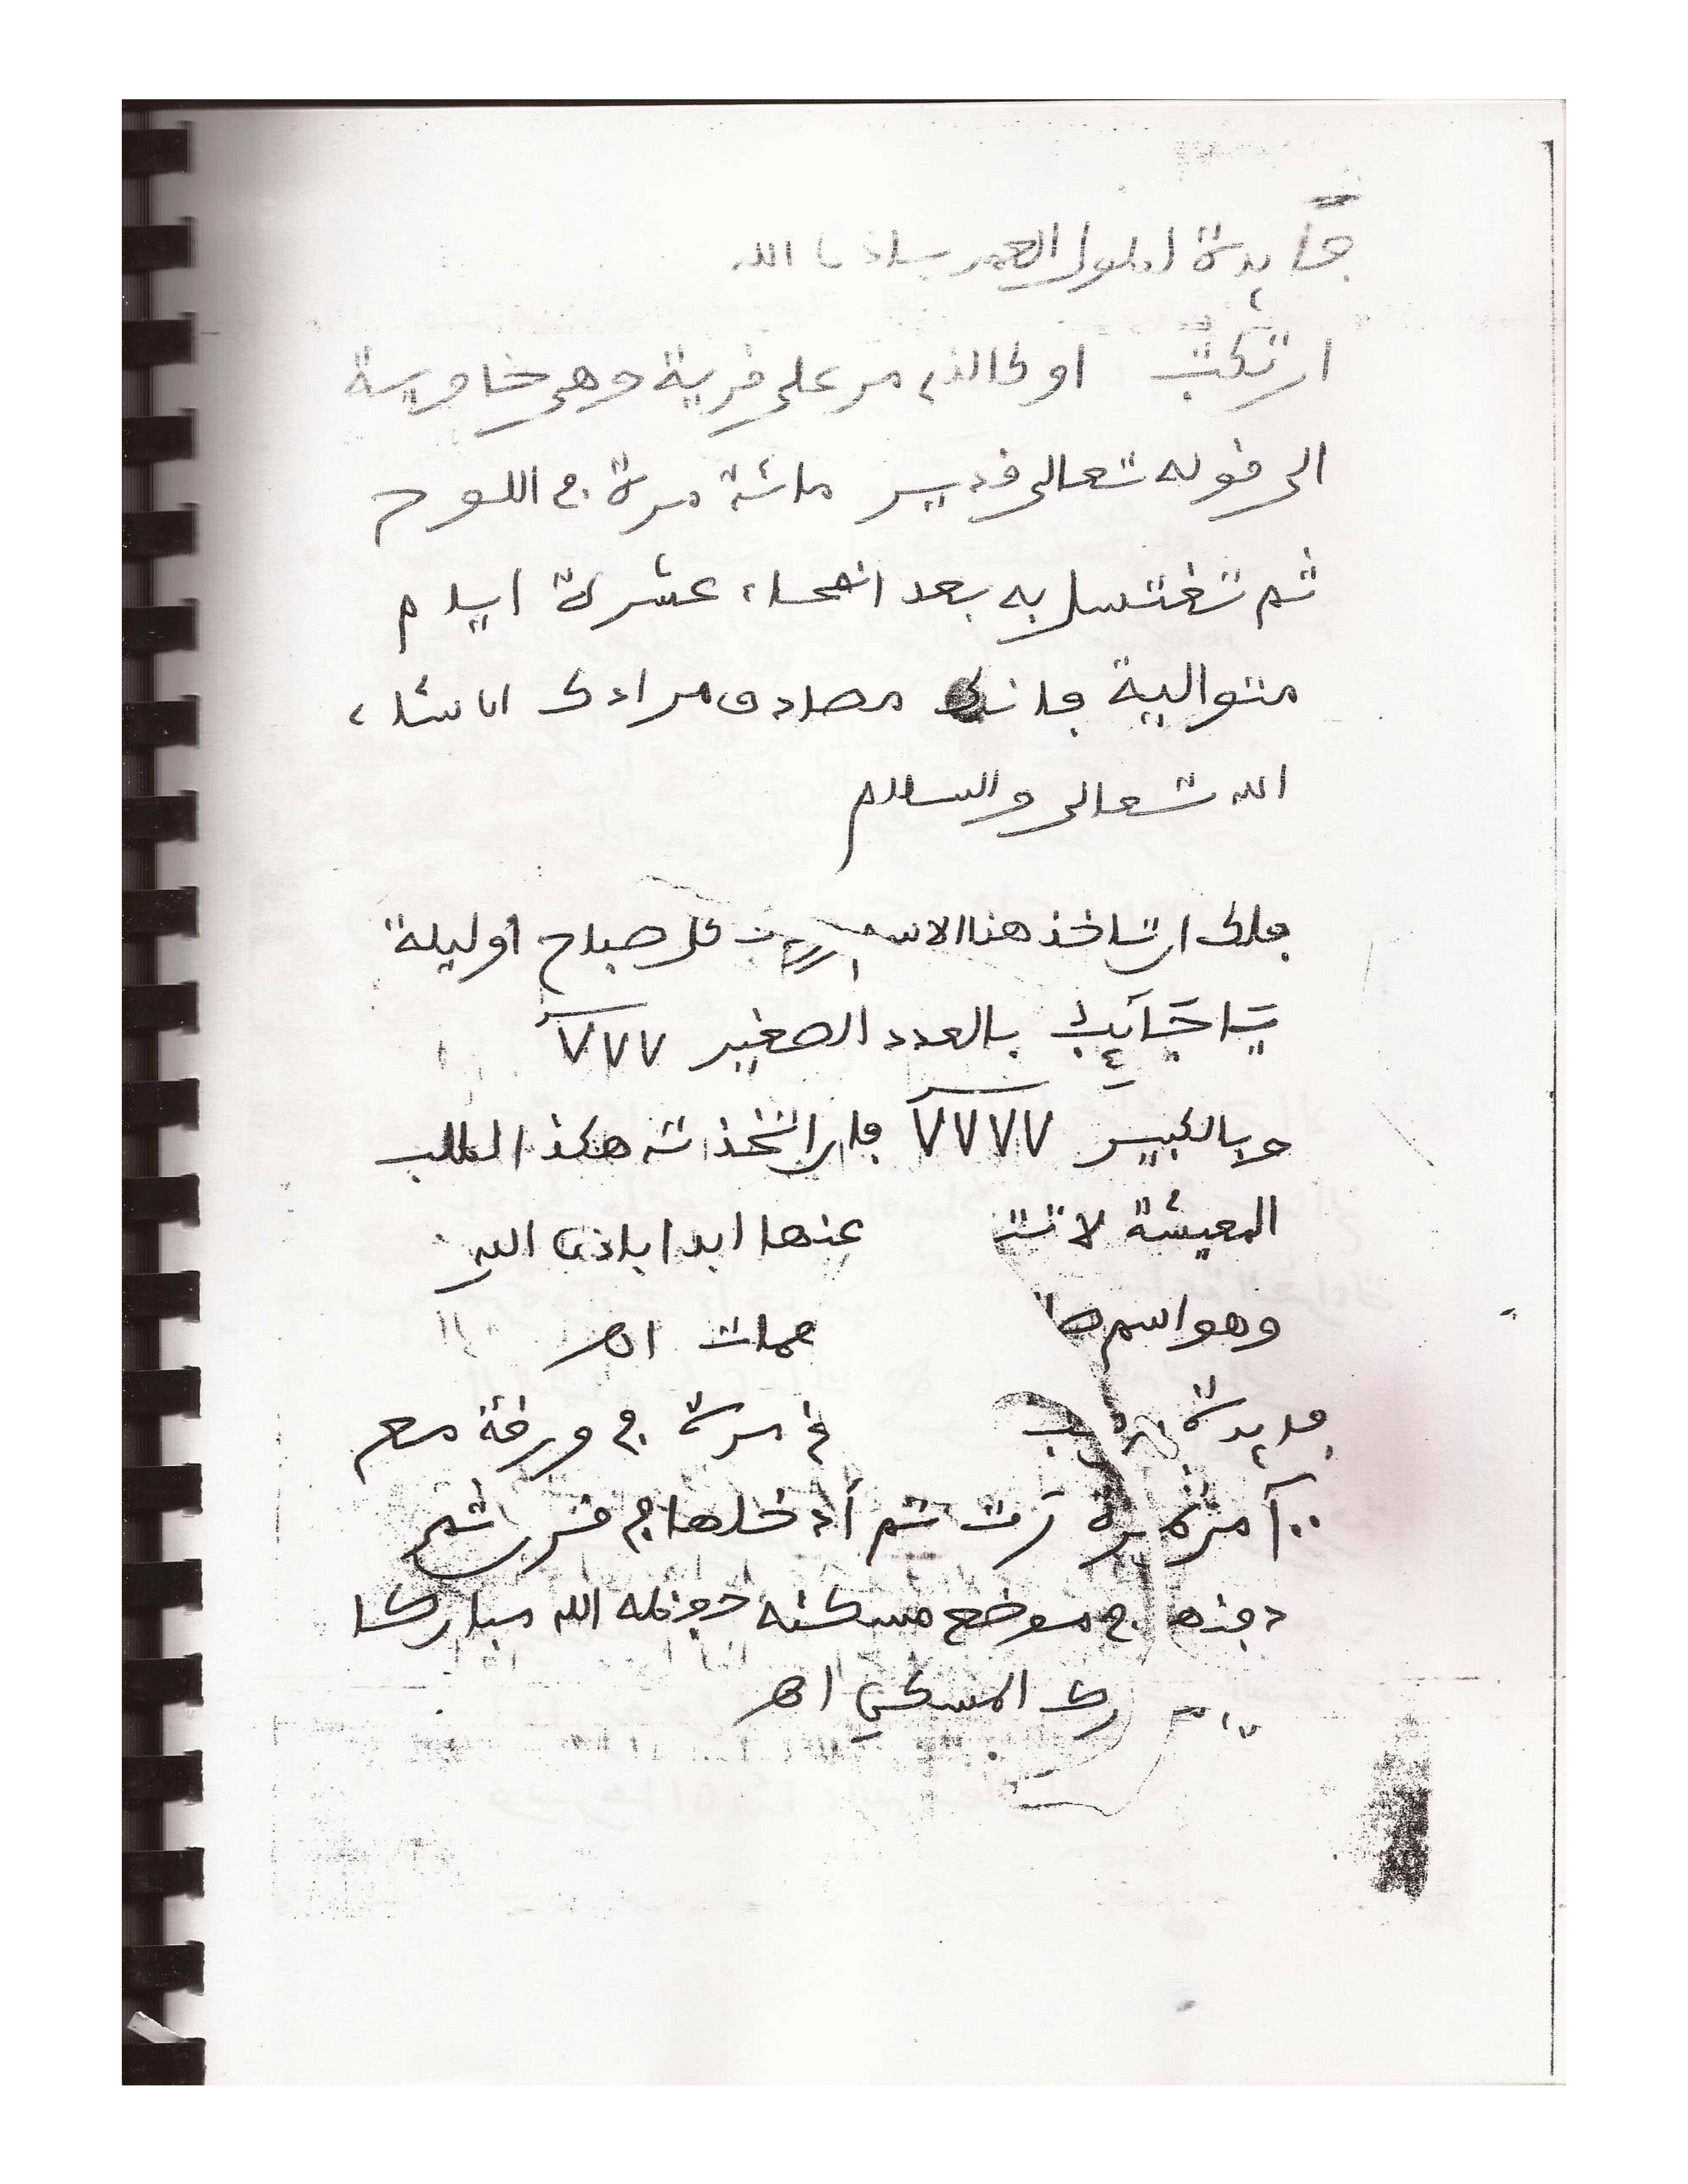 فآيدة لطول العمر باذن الله
ان تكتب او كالذي مر على قرية وهي خاوية
الى قوله تعالى قدير مائة مرة في اللوح
ثم تغتسل به بعد انمحاء عشرة ايام
متوالية فانك مصادف مرادك ان شاء
الله تعالى والسلام
فلك ان تاخذ هذا الاسم كل صباح او ليلة
بالعدد الصغير ٧٧٧
وبالكبير ٧٧٧٧ فان اتخذته هكذا لطلب
المعيشة لا عنها ابدا باذن الله
وهو اسم اهـ
فايدة مرة في ورقة مع
ثم أدخلها في قرن ثم
دفنها في موضع مسكنه جعله الله مباركا
المسكن اهـ